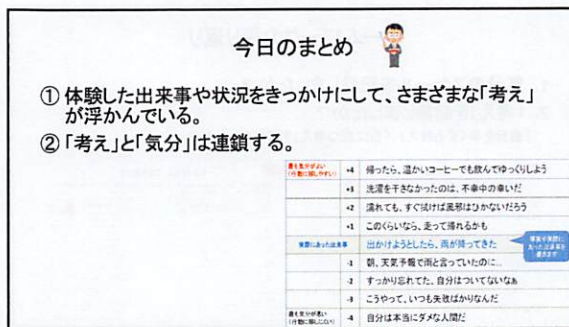 今日のまとめ
① 体験した出来事や状況をきっかけにして、さまざまな「考え」
が浮かんでいる。
② 「考え」と「気分」は連鎖する。
最も気分がよい
(行動に移しやすい)
+4 帰ったら、温かいコーヒーでも飲んでゆっくりしよう
+3 洗濯を干さなかったのは、不幸中の幸いだ
+2 濡れても、すぐ拭けば風邪はひかないだろう
+1 このくらいなら、走って帰れるかも
実際にあった出来事 出かけようとしたら、雨が降ってきた
-1 朝、天気予報で雨と言っていたのに…
-2 すっかり忘れてた、自分はついてないなぁ
-3 こうやって、いつも失敗ばかりなんだ
最も気分が悪い
-4 自分は本当にダメな人間だ